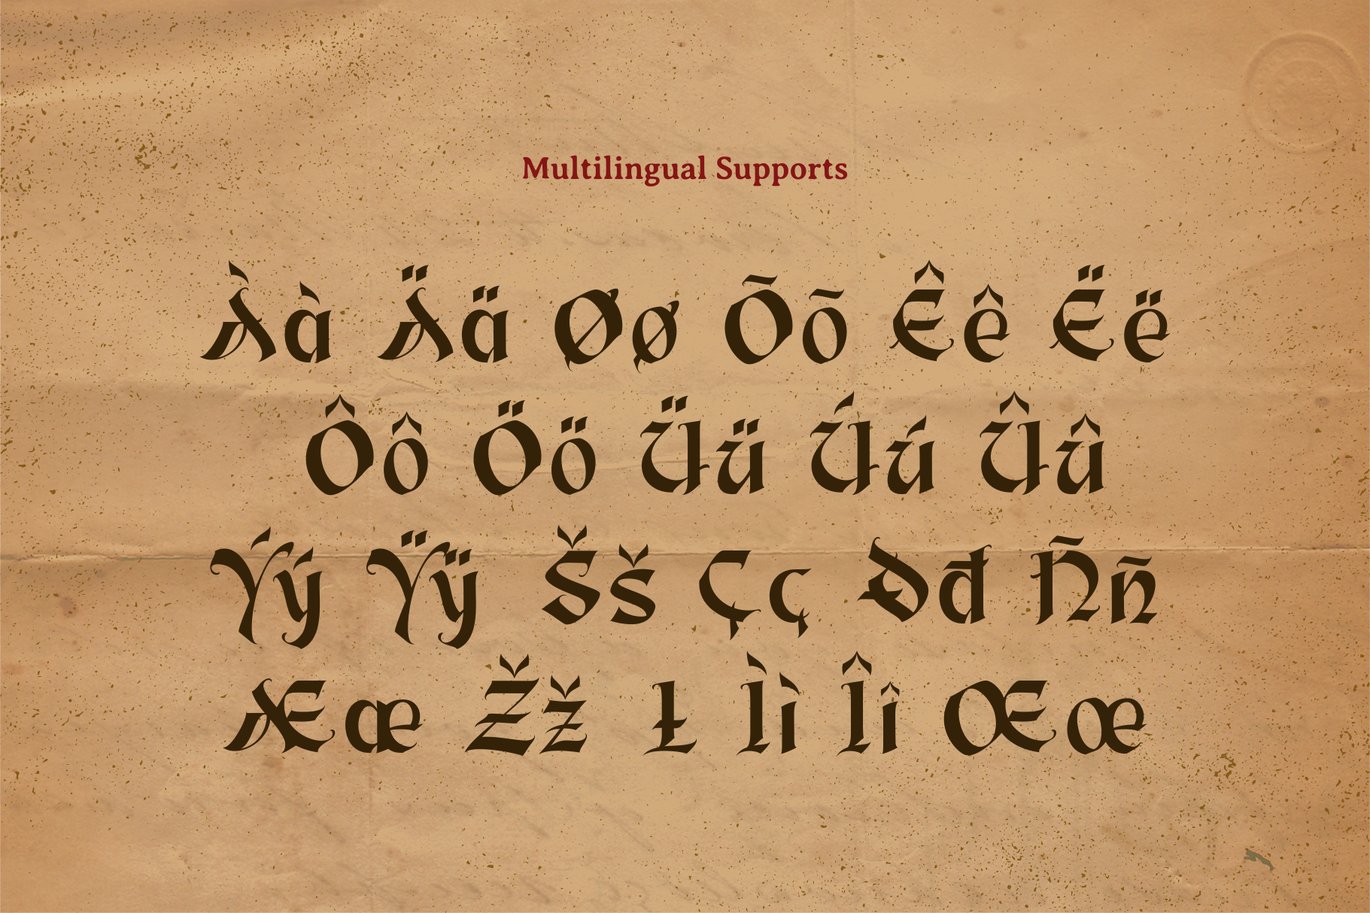 Multilingual Supports
Àà Ää Øø Õõ Êê Ëë
Ôô Öö Üü Úú Ûû
Ýý Ÿÿ Šš Çç Ðđ Ññ
Ææ Žž Ł Ìì Îî Œœ